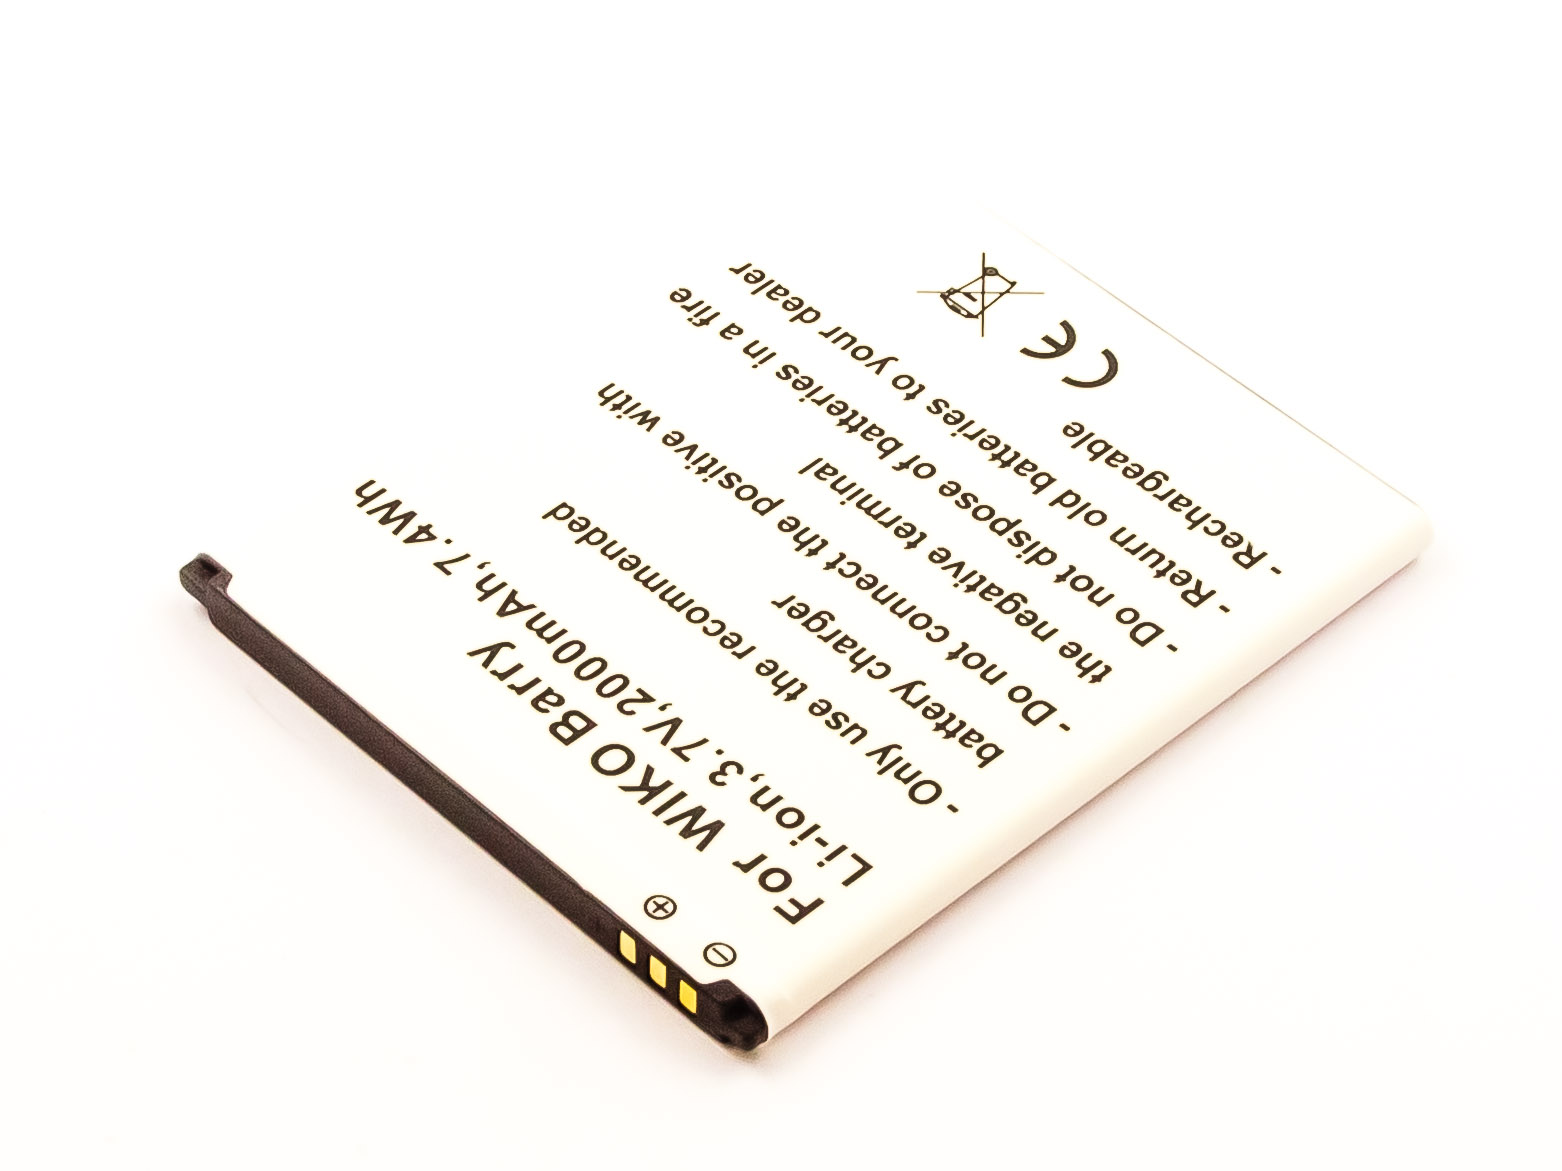 For WIKO Barry
Li-ion,3.7V,2000mAh,7.4Wh
- Only use the recommended
battery charger
- Do not connect the positive with
the negative terminal
- Do not dispose of batteries in a fire
- Return old batteries to your dealer
- Rechargeable
CE